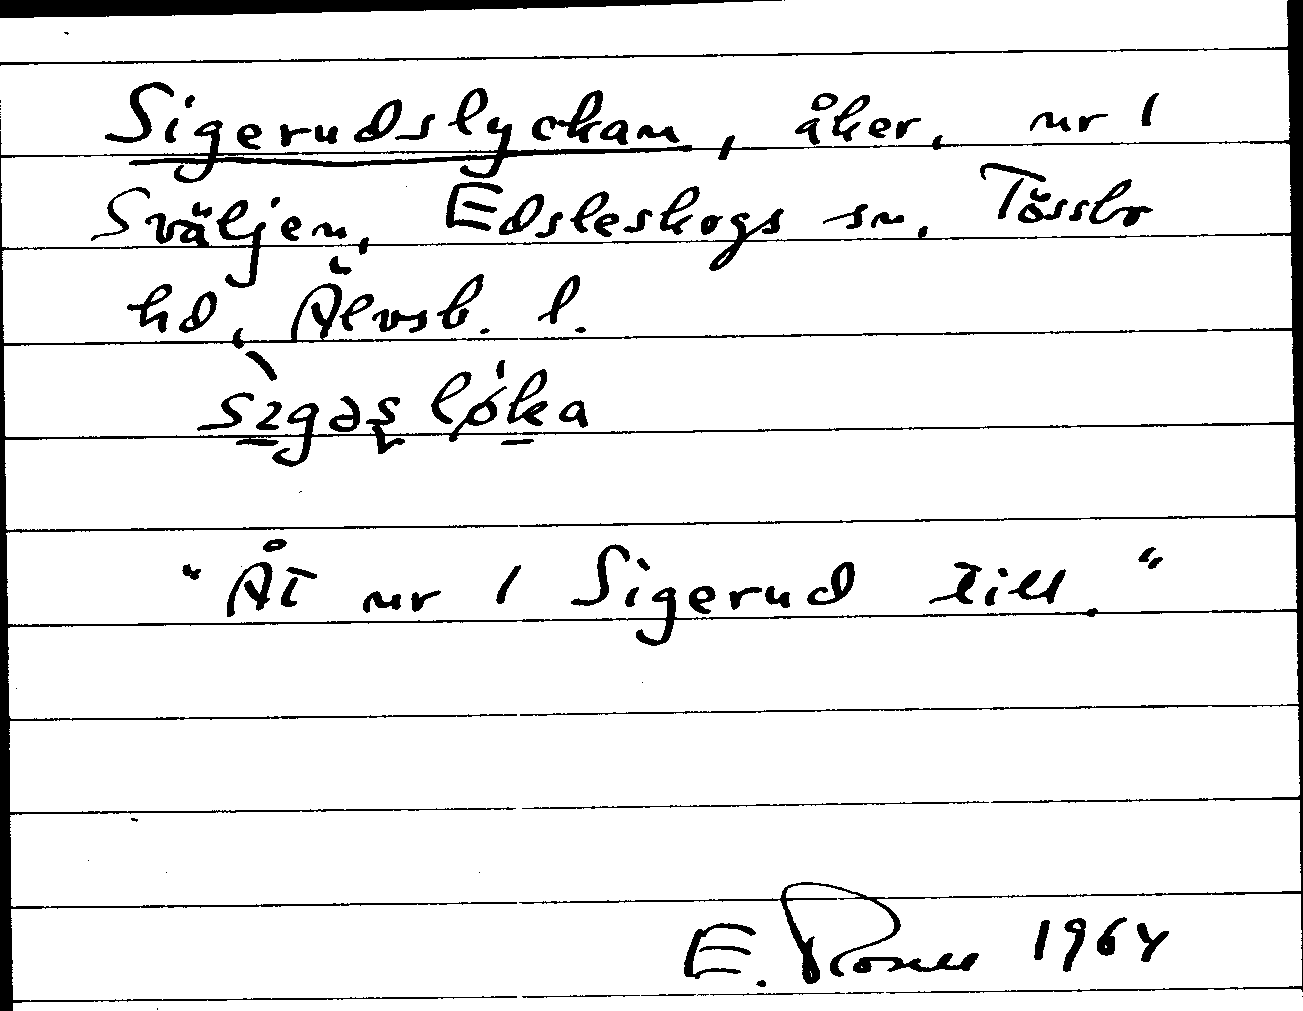 Sigerudslyckan, åker, nr 1
Sväljen, Edsleskogs sn, Tössbo
hd, Älvsb. l.
sìgəs lǿka
"Åt nr 1 Sigerud till."
E. 1964